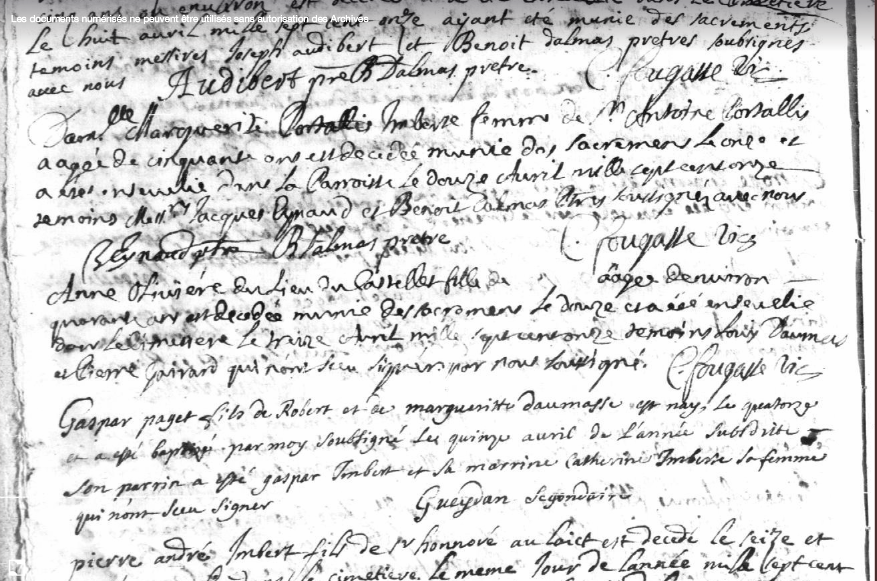 Les documents numérisés ne peuvent être utilisés sans autorisation des Archives
Le huit avril mille sept cent onze ayant été munie des sacrements
temoins messires Joseph audibert et Benoit dalmas pretres soubsignes
avec nous Audibert ptre B Dalmas pretre C. fougasse Vic
Dam.lle Marguerite Imberte femme de Sr Antoine Portallis
aagée de cinquante ans est decedée munie des sacremens Le onze et
a esté ensevelie dans La Parroisse Le douze Avril mille sept cent onze
temoins Mess.rs Jacques Eynaud et Benoit Dalmas Ptres soussignés avec nous
Eynaud ptre B Dalmas pretre C. fougasse Vic
Anne Oliviére du Lieu du Castellet fille de aagée denviron
quarante ans est decedée munie des sacremens Le douze et a été ensevelie
dans Le cimetiere Le treize Avril mille sept cent onze temoins Louis Daumas
et Pierre qui n'ont sceu signer par nous soussigné. C. fougasse Vic
Gaspar paget fils de Robert et de margueritte daumasse est nay, le quatorze
et a esté baptizé par moy soubsigné Le quinze avril de L'année susdite
son parrin a esté gaspar Imbert et sa marrine Catherine Imberte sa femme
qui n'ont sceu signer Gueydan segondaire
pierre andré Imbert fils de sr honnoré au laict est decedé le seize et
cimetiere Le meme Jour de Lannée mille sept cent